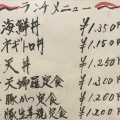 ランチメニュー
海鮮丼 ¥1.350
ネギトロ丼 ¥1.150
天丼 ¥1.250
天婦羅定食 ¥1.300
豚かつ定食 ¥1.200
豚生姜焼定食 ¥1.200